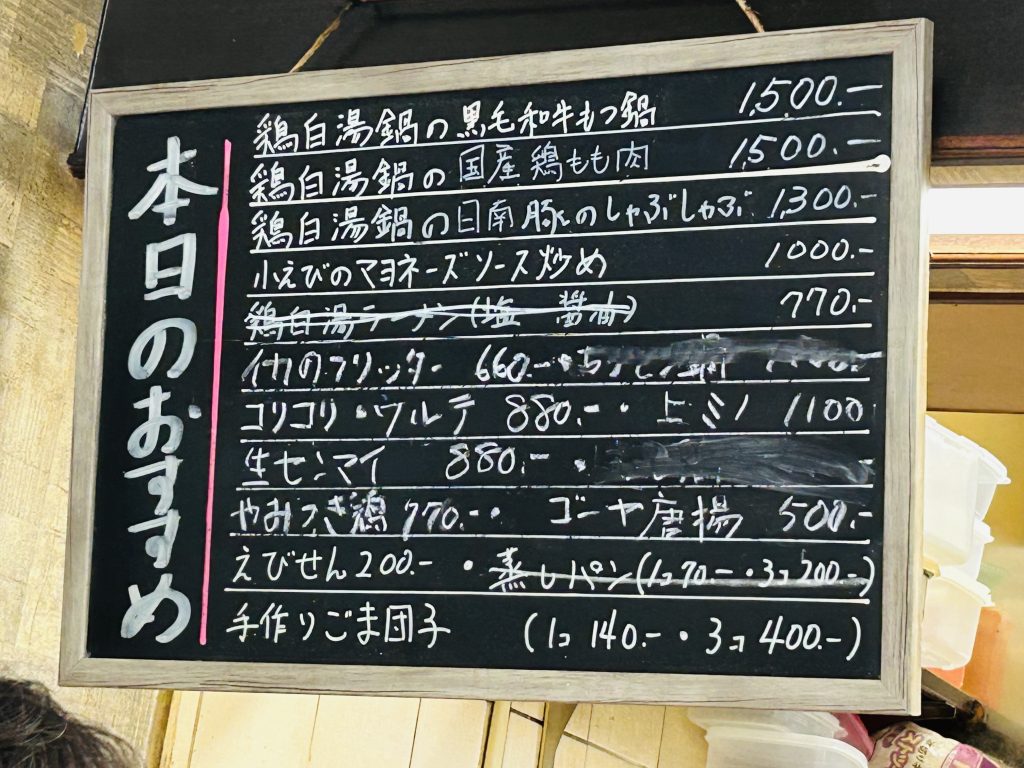 本日のおすすめ
鶏白湯鍋の黒毛和牛もつ鍋 1,500.-
鶏白湯鍋の国産鶏もも肉 1,500.-
鶏白湯鍋の日南豚のしゃぶしゃぶ 1,300.-
小えびのマヨネーズソース炒め 1000.-
鶏白湯ラーメン(塩 醤油) 770.-
イカのフリッター 660.-・
コリコリ・ウルテ 880.-・上ミノ 1100
生センマイ 880.-・
やみつき鶏 770.-・ ゴーヤ唐揚 500.-
えびせん 200.-・蒸しパン(1コ70.-・3コ200.-)
手作りごま団子 (1コ140.-・3コ400.-)